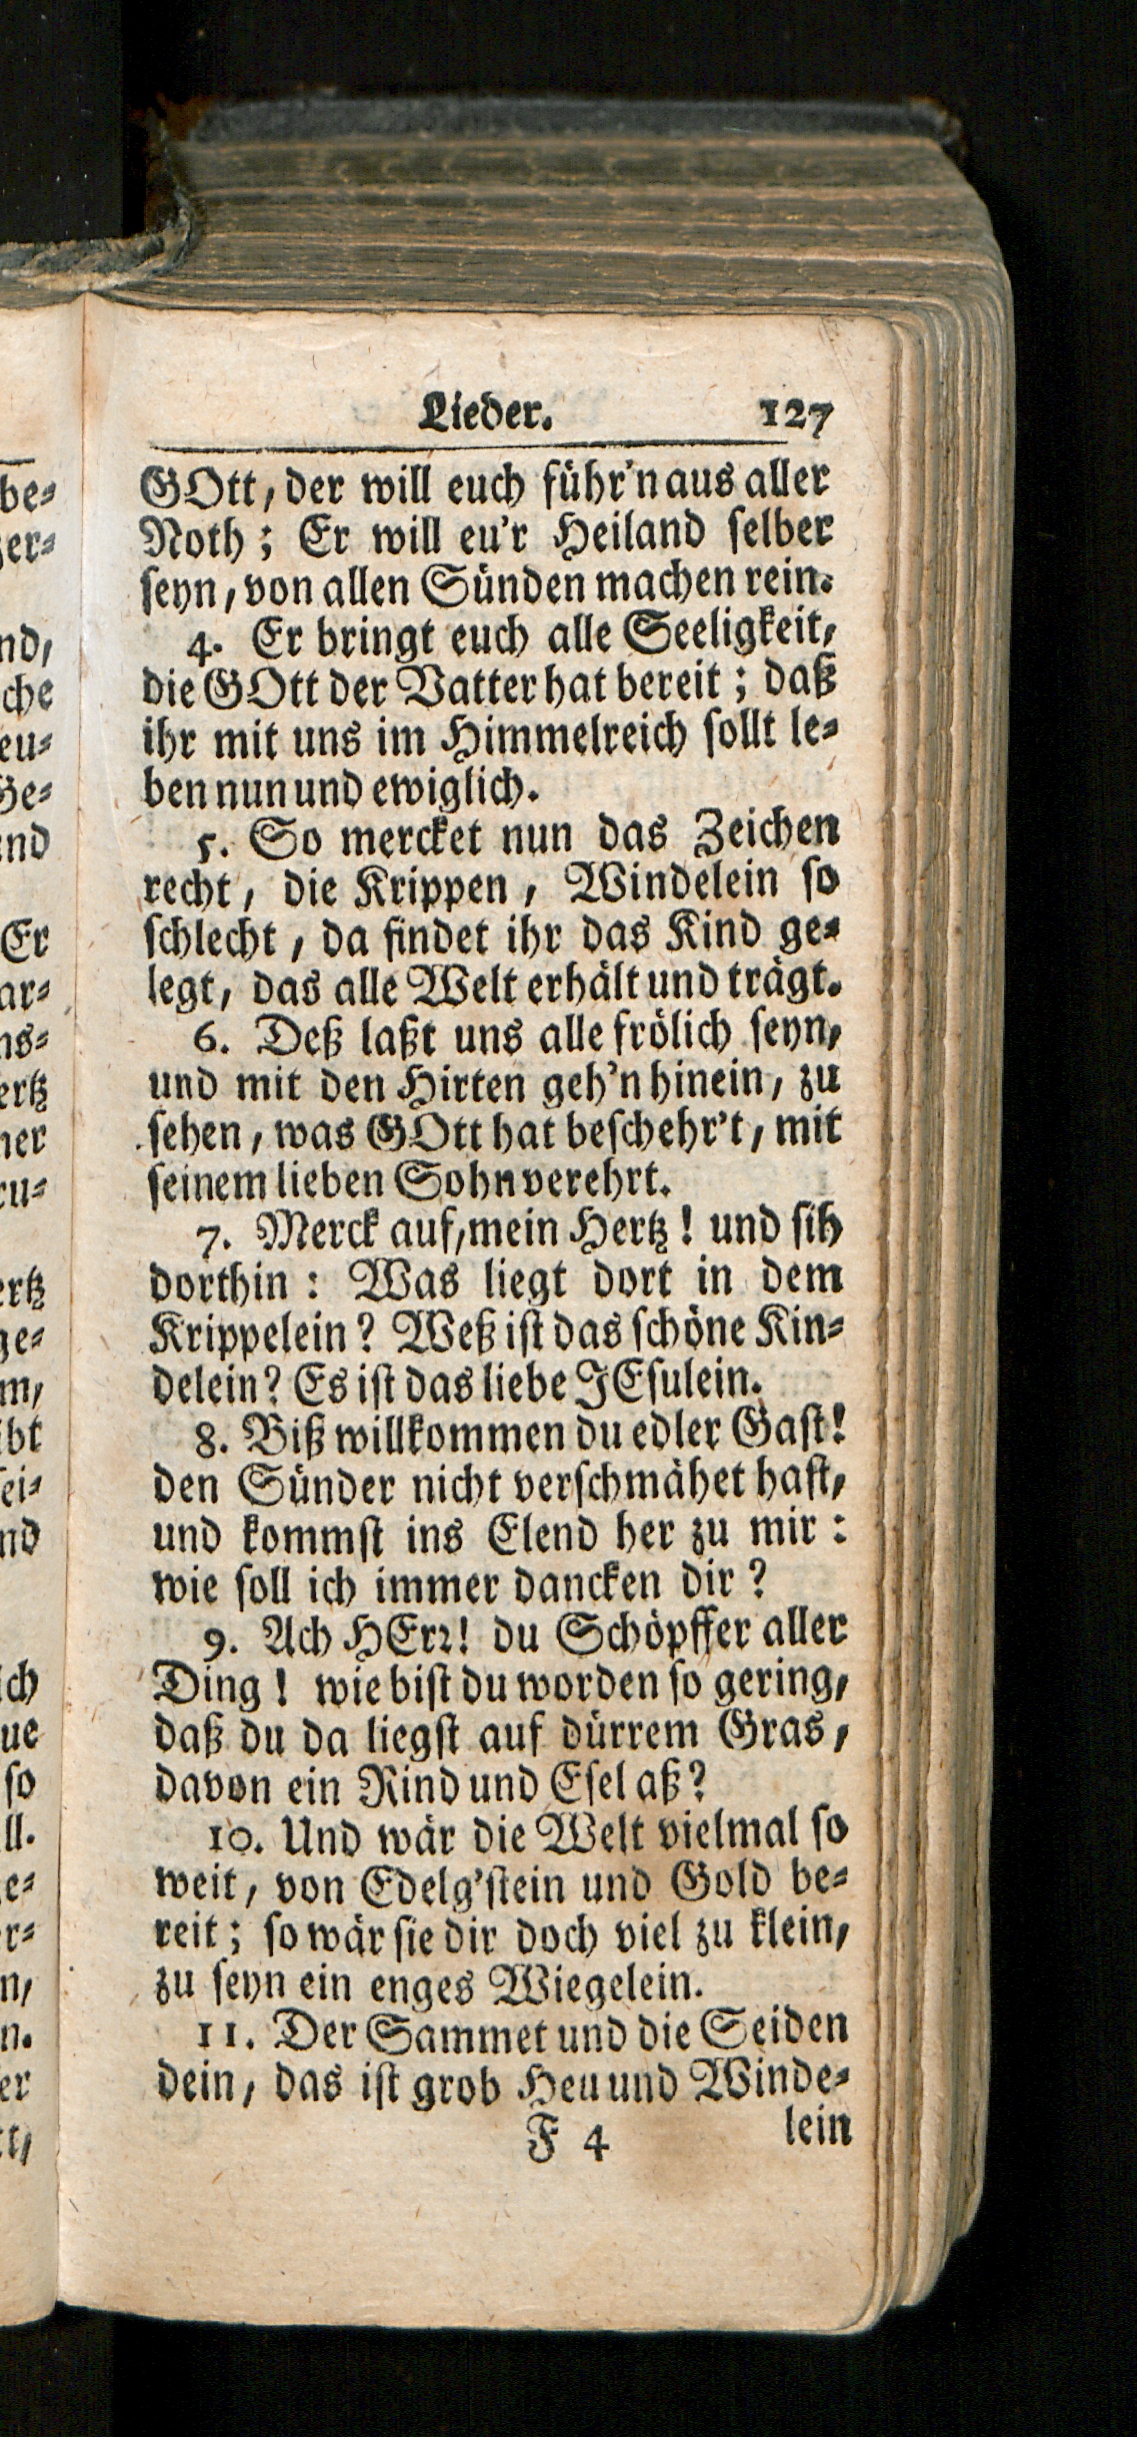 Lieder. 127
GOtt, der will euch führ'n aus aller
Noth; Er will eu'r Heiland selber
seyn, von allen Sünden machen rein.
4. Er bringt euch alle Seeligkeit,
die GOtt der Vatter hat bereit; daß
ihr mit uns im Himmelreich sollt le-
ben nun und ewiglich.
5. So mercket nun das Zeichen
recht, die Krippen, Windelein so
schlecht, da findet ihr das Kind ge-
legt, das alle Welt erhält und trägt.
6. Deß laßt uns alle frölich seyn,
und mit den Hirten geh'n hinein, zu
sehen, was GOtt hat beschehr't, mit
seinem lieben Sohn verehrt.
7. Merck auf, mein Hertz! und sih
dorthin: Was liegt dort in dem
Krippelein? Weß ist das schöne Kin-
delein? Es ist das liebe JEsulein.
8. Biß willkommen du edler Gast!
den Sünder nicht verschmähet hast,
und kommst ins Elend her zu mir:
wie soll ich immer dancken dir?
9. Ach HErr! du Schöpffer aller
Ding! wie bist du worden so gering,
daß du da liegst auf dürrem Gras,
davon ein Rind und Esel aß?
10. Und wär die Welt vielmal so
weit, von Edelg'stein und Gold be-
reit; so wär sie dir doch viel zu klein,
zu seyn ein enges Wiegelein.
11. Der Sammet und die Seiden
dein, das ist grob Heu und Winde-
F 4 lein